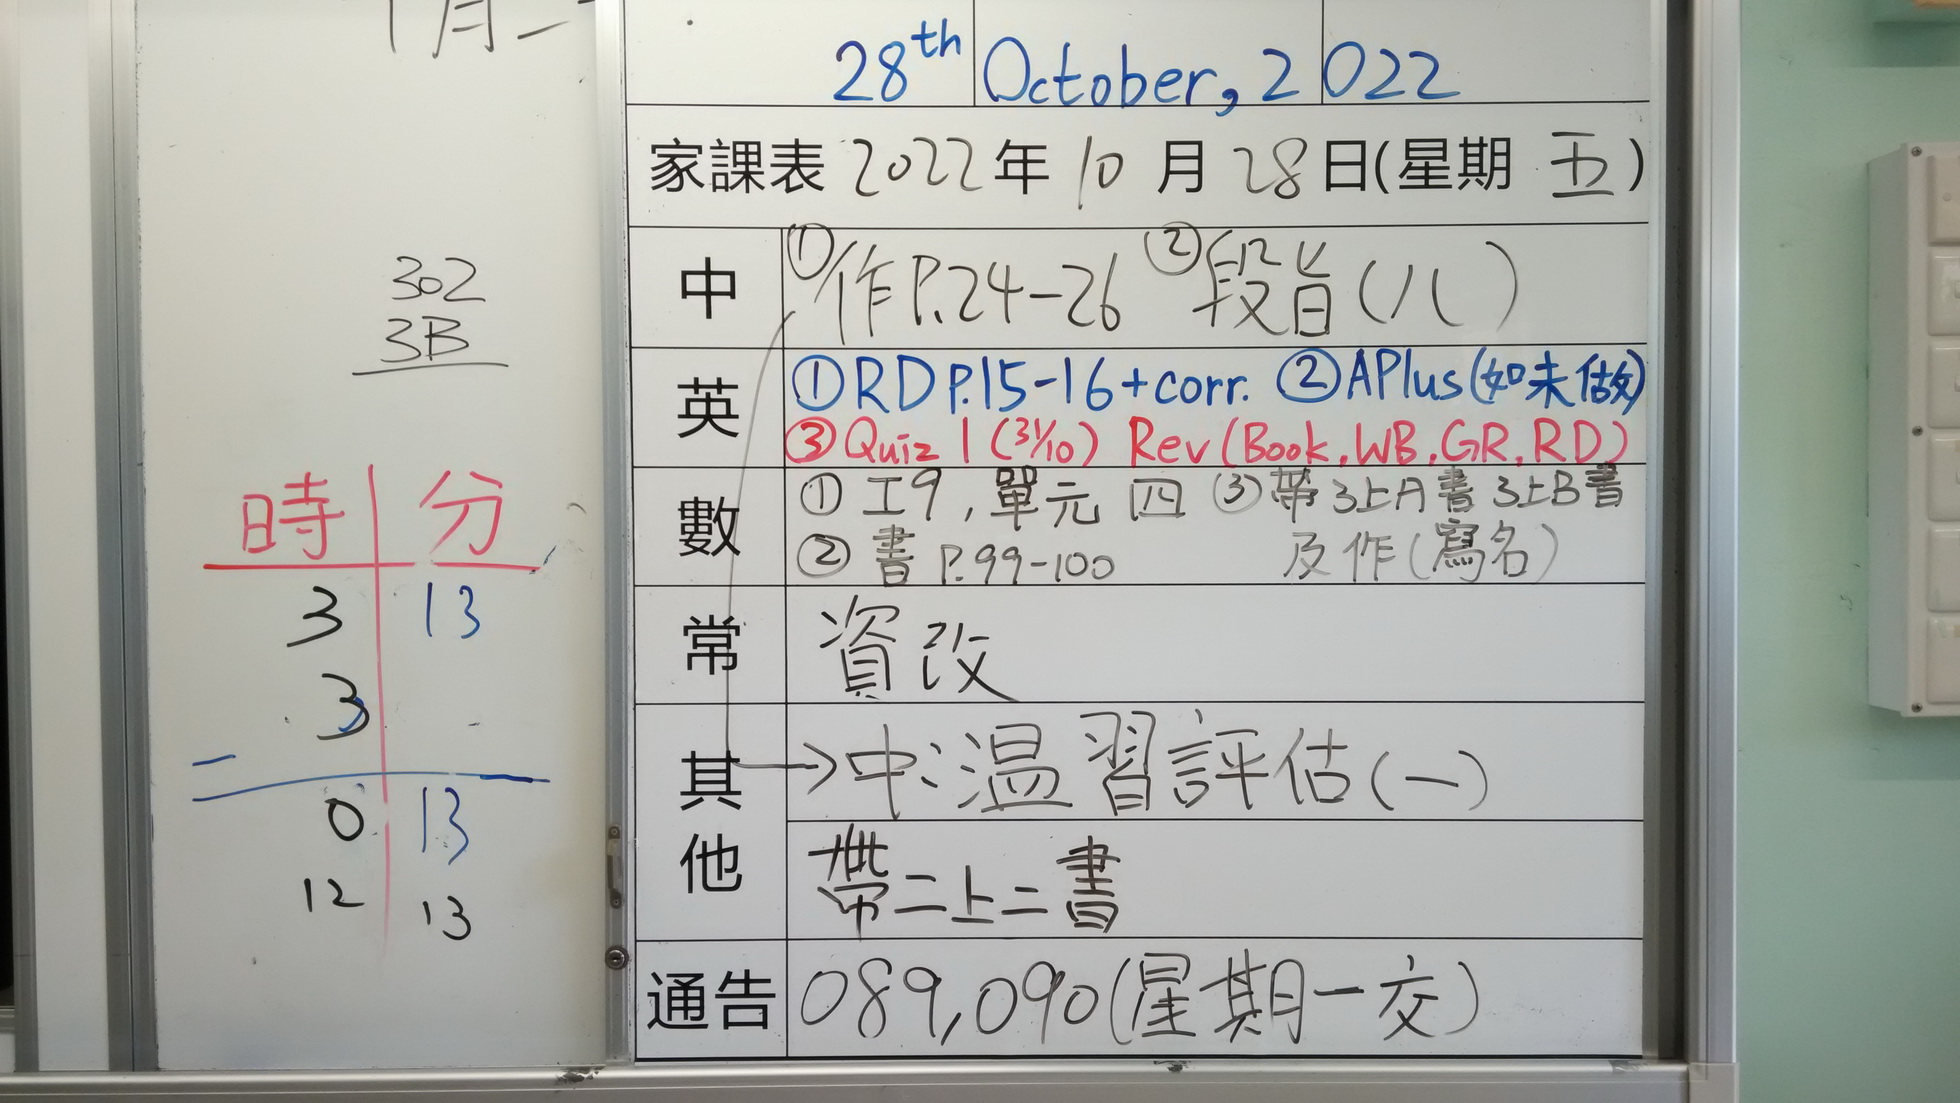 月二
302
3B
時 分
3 13
3
0 13
12 13
28th October, 2022
家課表 2022 年 10 月 28 日(星期 五)
中 ①作P.24-26 ②段旨(八)
英 ①RD P.15-16+corr. ②APlus(如未做)
③Quiz 1 (31/10) Rev(Book,WB,GR,RD)
數 ① 工9,單元 四 ③帶3上A書3上B書
② 書 P.99-100 及作(寫名)
常 資改
其他 →中:温習評估(一)
帶二上二書
通告 089,090(星期一交)